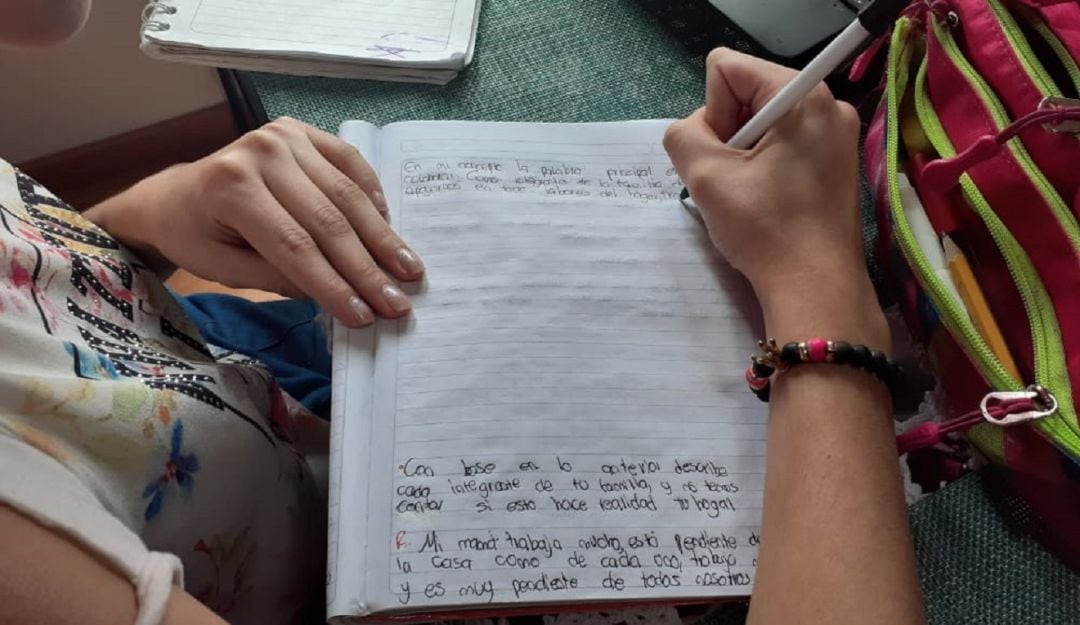 En mi concepto la palabra principal es
colaborar. Como integrantes de la familia
en todo labores del hogar,
•Con base en lo anterior describe
cada integrante de tu familia, y si
contar si esto hace realidad tu hogar
R. Mi mamá trabaja mucho, está pendiente de
la casa como de cada uno, trabaja
y es muy pendiente de todos nosotros